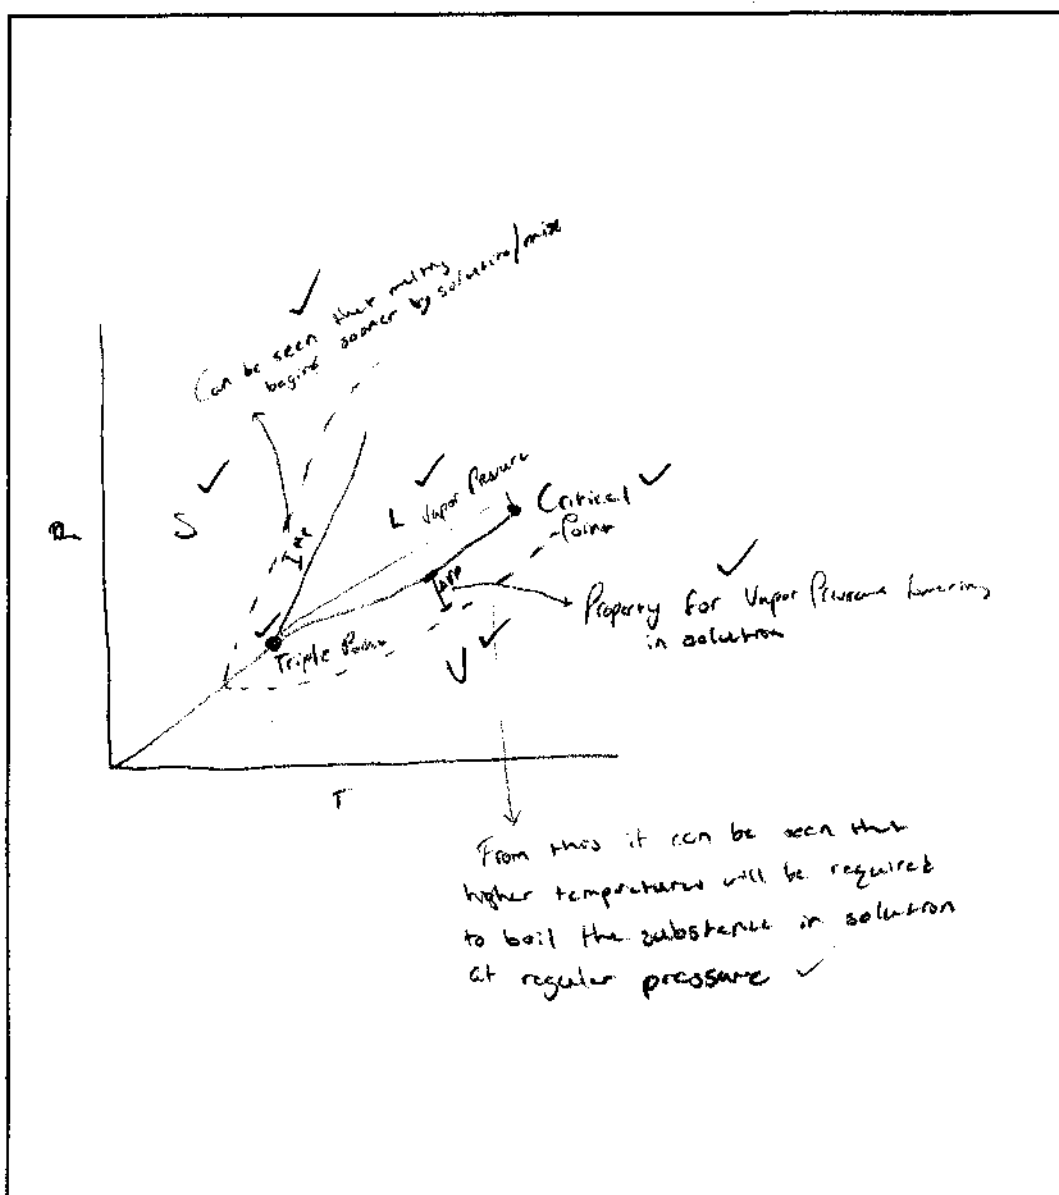 Can be seen that melting
begins sooner by solution/mix
S
L Vapor Pressure
Critical
Point
P
Property for Vapor Pressure lowering
in solution
Triple Point
V
T
From this it can be seen that
higher tempretures will be required
to boil the substance in solution
at regular pressure